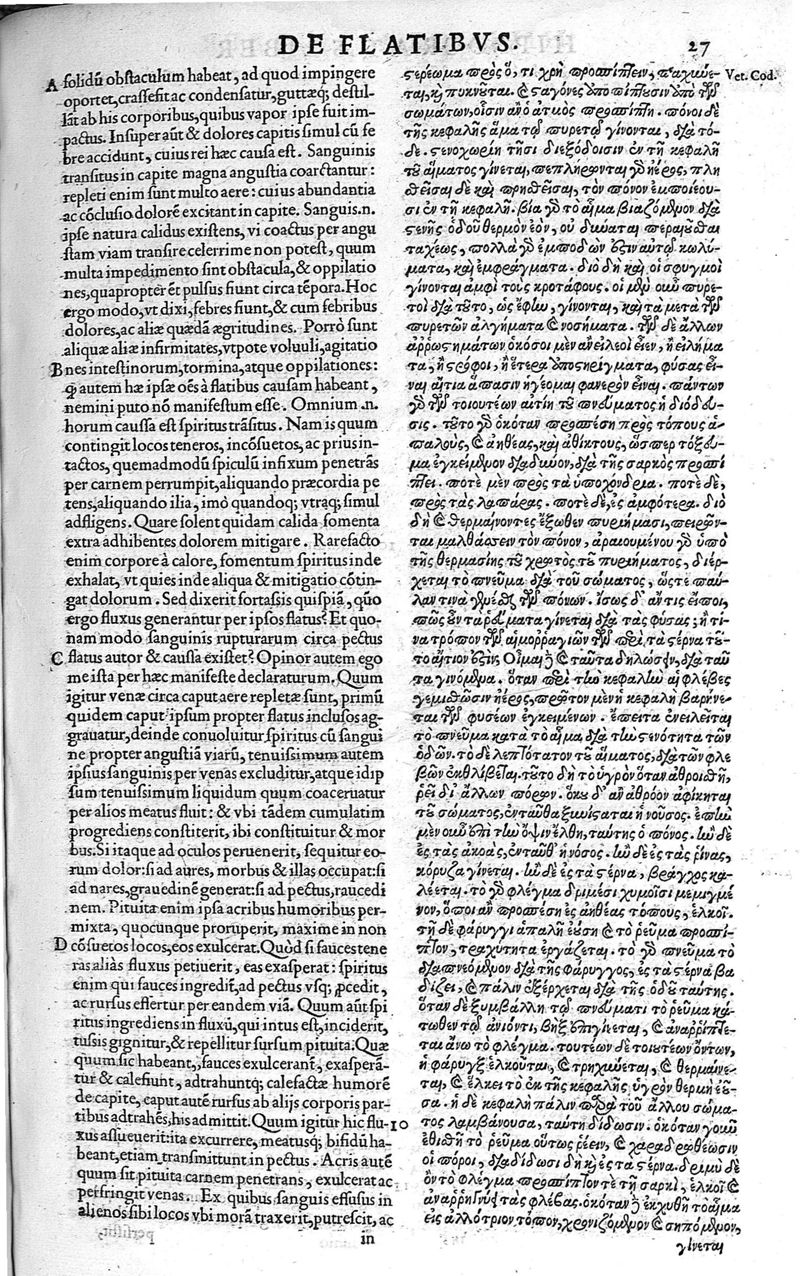 DE FLATIBVS.
27
A solidũ obstaculum habeat, ad quod impingere
oportet, crassescit ac condensatur, guttæq; destil-
lãt ab his corporibus, quibus vapor ipse fuit im-
pactus. Insuper aũt & dolores capitis simul cũ fe
bre accidunt, cuius rei hæc causa est. Sanguinis
transitus in capite magna angustia coarctantur:
repleti enim sunt multo aere: cuius abundantia
ac cõclusio dolorẽ excitant in capite. Sanguis.n.
ipse natura calidus existens, vi coactus per angu
stam viam transire celerrime non potest, quum
multa impedimento sint obstacula, & oppilatio
nes, quapropter et pulsus fiunt circa tẽpora. Hoc
ergo modo, vt dixi, febres fiunt, & cum febribus
dolores, ac aliæ quædã ægritudines. Porrò sunt
aliquæ aliæ infirmitates, vtpote voluuli, agitatio
B nes intestinorum, tormina, atque oppilationes:
autem hæ ipsæ oẽs à flatibus causam habeant,
nemini puto nõ manifestum esse. Omnium .n.
horum caussa est spiritus trãsitus. Nam is quum
contingit locos teneros, incõsuetos, ac prius in-
tactos, quemadmodũ spiculũ infixum penetrãs
per carnem perrumpit, aliquando præcordia pe
tens, aliquando ilia, imò quandoq; vtraq; simul
adfligens. Quare solent quidam calida fomenta
extra adhibentes dolorem mitigare. Rarefacto
enim corpore à calore, fomentum spiritus inde
exhalat, vt quies inde aliqua & mitigatio cõtin-
gat dolorum. Sed dixerit fortassis quispiã, quõ
ergo fluxus generantur per ipsos flatus? Et quo-
nam modo sanguinis rupturarum circa pectus
C flatus autor & caussa existet? Opinor autem ego
me ista per hæc manifeste declaraturum. Quum
igitur venæ circa caput aere repletæ sunt, primũ
quidem caput ipsum propter flatus inclusos ag-
grauatur, deinde conuoluitur spiritus cũ sangui
ne propter angustiã viarũ, tenuissimum autem
ipsius sanguinis per venas excluditur, atque id ip
sum tenuissimum liquidum quum coaceruatur
per alios meatus fluit: & vbi tãdem cumulatim
progrediens constiterit, ibi constituitur & mor
bus. Si itaque ad oculos peruenerit, sequitur eo-
rum dolor: si ad aures, morbus & illas occupat: si
ad nares, grauedinẽ generat: si ad pectus, raucedi
nem. Pituita enim ipsa acribus humoribus per-
mixta, quocunque proruperit, maxime in non
D cõsuetos locos, eos exulcerat. Quòd si fauces tene
ras aliàs fluxus petiuerit, eas exasperat: spiritus
enim qui fauces ingredit, ad pectus vsq; ꝓcedit,
ac rursus effertur per eandem viã. Quum aũt spi
ritus ingrediens in fluxũ, qui intus est, inciderit,
tussis gignitur, & repellitur sursum pituita: Quæ
quum sic habeant, fauces exulcerant, exaspera-
tur & calefiunt, adtrahuntq; calefactæ humorẽ
de capite, caput autẽ rursus ab alijs corporis par-
tibus adtrahẽs, his admittit. Quum igitur hic flu-
10
xus assueuerit ita excurrere, meatusq; bifidũ ha-
beant, etiam transmittunt in pectus. Acris autẽ
quum sit pituita carnem penetrans, exulcerat ac
perfringit venas. Ex quibus sanguis effusus in
alienos sibi locos vbi morã traxerit, putrescit, ac
in
Vet. Cod.
στερέωμα πρὸς ὅ, τι χρὴ προσπίπτειν, παχύνε-
ται, καὶ πυκνοῦται. καὶ σταγόνες ἀποπίπτουσιν ἀπὸ τῶν
σωμάτων, οἷσιν ἂν ὁ ἀτμὸς προσπίπτῃ. πόνοι δὲ
τῆς κεφαλῆς ἅμα τῷ πυρετῷ γίνονται, διὰ τό-
δε. στενοχωρίη τῇσι διεξόδοισιν ἐν τῇ κεφαλῇ
τοῦ αἵματος γίνεται, πεπλήρωνται γὰρ ἠέρος, πλη
σθεῖσαι δὲ καὶ πρησθεῖσαι, τὸν πόνον ἐμποιέου-
σι ἐν τῇ κεφαλῇ. βίᾳ γὰρ τὸ αἷμα βιαζόμενον διὰ
στενῆς ὁδοῦ θερμὸν ἐὸν, οὐ δύναται περαιοῦσθαι
ταχέως, πολλὰ γὰρ ἐμποδὼν ἐστιν αὐτῷ κωλύ-
ματα, καὶ ἐμφράγματα. διὸ δὴ καὶ οἱ σφυγμοὶ
γίνονται ἀμφὶ τοὺς κροτάφους. οἱ μὲν οὖν πυρε-
τοὶ διὰ τοῦτο, ὡς ἔφην, γίνονται, καὶ τὰ μετὰ τῶν
πυρετῶν ἀλγήματα καὶ νοσήματα. τῶν δὲ ἄλλων
ἀῤῥωστημάτων ὁκόσοι μὲν ἂν εἰλεοὶ εἶεν, ἢ εἰλήμα
τα, ἢ στρόφοι, ἢ ἕτερα ἀποστηρίγματα, φύσας εἶ-
ναι αἴτια ἅπασιν ἡγέομαι φανερὸν εἶναι. πάντων
γὰρ τῶν τοιουτέων αἰτίη τοῦ πνεύματος ἡ διόδευ-
σις. τοῦτο γὰρ ὁκόταν προσπέσῃ πρὸς τόπους ἁ-
παλοὺς, καὶ ἀηθέας, καὶ ἀθίκτους, ὥσπερ τόξευ-
μα ἐγκείμενον διαδῦνον, διὰ τῆς σαρκὸς προσπί
πτει. ποτὲ μὲν πρὸς τὰ ὑποχόνδρια. ποτὲ δὲ,
πρὸς τὰς λαπάρας. ποτὲ δὲ, ἐς ἀμφότερα. διὸ
δὴ καὶ θερμαίνοντες ἔξωθεν πυριήμασι, πειρῶν-
ται μαλθάσσειν τὸν πόνον, ἀραιουμένου γὰρ ὑπὸ
τῆς θερμασίης τοῦ χρωτὸς τοῦ πυριήματος, διέρ-
χεται τὸ πνεῦμα διὰ τοῦ σώματος, ὥστε παῦ-
λάν τινα γενέσθαι τῶν πόνων. ἴσως δ' ἄν τις εἴποι,
πῶς οὖν τὰ ῥεύματα γίνεται διὰ τὰς φύσας; ἢ τί-
να τρόπον τῶν αἱμοῤῥαγιῶν τῶν περὶ τὰ στέρνα τοῦ-
το αἴτιον ἐστιν; Οἶμαι δὲ καὶ ταῦτα δηλώσειν, διὰ ταῦ
τα γινόμενα. ὅταν περὶ τὴν κεφαλὴν αἱ φλέβες
γεμισθῶσιν ἠέρος, πρῶτον μὲν ἡ κεφαλὴ βαρύνε-
ται τῶν φυσέων ἐγκειμένων. ἔπειτα ἐνειλεῖται
τὸ πνεῦμα κατὰ τὸ αἷμα, διὰ τὴν στενότητα τῶν
ὁδῶν. τὸ δὲ λεπτότατον τοῦ αἵματος, διὰ τῶν φλε
βῶν ἐκθλίβεται. τοῦτο δὴ τὸ ὑγρὸν ὅταν ἀθροισθῇ,
ῥέει δι' ἄλλων πόρων. ὅκου δ' ἂν ἀθρόον ἀφίκηται
τοῦ σώματος, ἐνταῦθα ξυνίσταται ἡ νοῦσος. ἐπὴν
μὲν οὖν ἐπὶ τὴν ὄψιν ἔλθῃ, ταύτης ὁ πόνος. ἢν δὲ
ἐς τὰς ἀκοὰς, ἐνταῦθ' ἡ νόσος. ἢν δὲ ἐς τὰς ῥῖνας,
κόρυζα γίνεται. ἢν δὲ ἐς τὰ στέρνα, βράγχος κα-
λέεται. τὸ γὰρ φλέγμα δριμέσι χυμοῖσι μεμιγμέ
νον, ὅποι ἂν προσπέσῃ ἐς ἀήθεας τόπους, ἑλκοῖ.
τῇ δὲ φάρυγγι ἁπαλῇ ἐούσῃ καὶ τὸ ῥεῦμα προσπί-
πτον, τραχύτητα ἐργάζεται. τὸ γὰρ πνεῦμα τὸ
διαπνεόμενον διὰ τῆς φάρυγγος, ἐς τὰ στέρνα βα
δίζει, καὶ πάλιν ἐξέρχεται διὰ τῆς ὁδοῦ ταύτης.
ὅταν δὲ ξυμβάλλῃ τῷ πνεύματι τὸ ῥεῦμα κά-
τωθεν τῷ ἀνιόντι, βὴξ ἐπιγίνεται, καὶ ἀναῤῥίπτε-
ται ἄνω τὸ φλέγμα. τουτέων δὲ τοιουτέων ὄντων,
ἡ φάρυγξ ἑλκοῦται, καὶ τρηχύνεται, καὶ θερμαίνε-
ται, καὶ ἕλκει τὸ ἐκ τῆς κεφαλῆς ὑγρὸν θερμὴ ἐοῦ-
σα. ἡ δὲ κεφαλὴ πάλιν παρὰ τοῦ ἄλλου σώμα-
τος λαμβάνουσα, ταύτῃ δίδωσιν. ὁκόταν γοῦν
ἐθισθῇ τὸ ῥεῦμα οὕτως ῥέειν, καὶ χαραδρωθέωσιν
οἱ πόροι, διαδίδωσι δὴ καὶ ἐς τὰ στέρνα. δριμὺ δὲ
ὂν τὸ φλέγμα προσπῖπτόν τε τῇ σαρκὶ, ἑλκοῖ καὶ
ἀναῤῥηγνύει τὰς φλέβας. ὁκόταν δ' ἐκχυθῇ τὸ αἷμα
εἰς ἀλλότριον τόπον, χρονιζόμενον καὶ σηπόμενον,
γίνεται